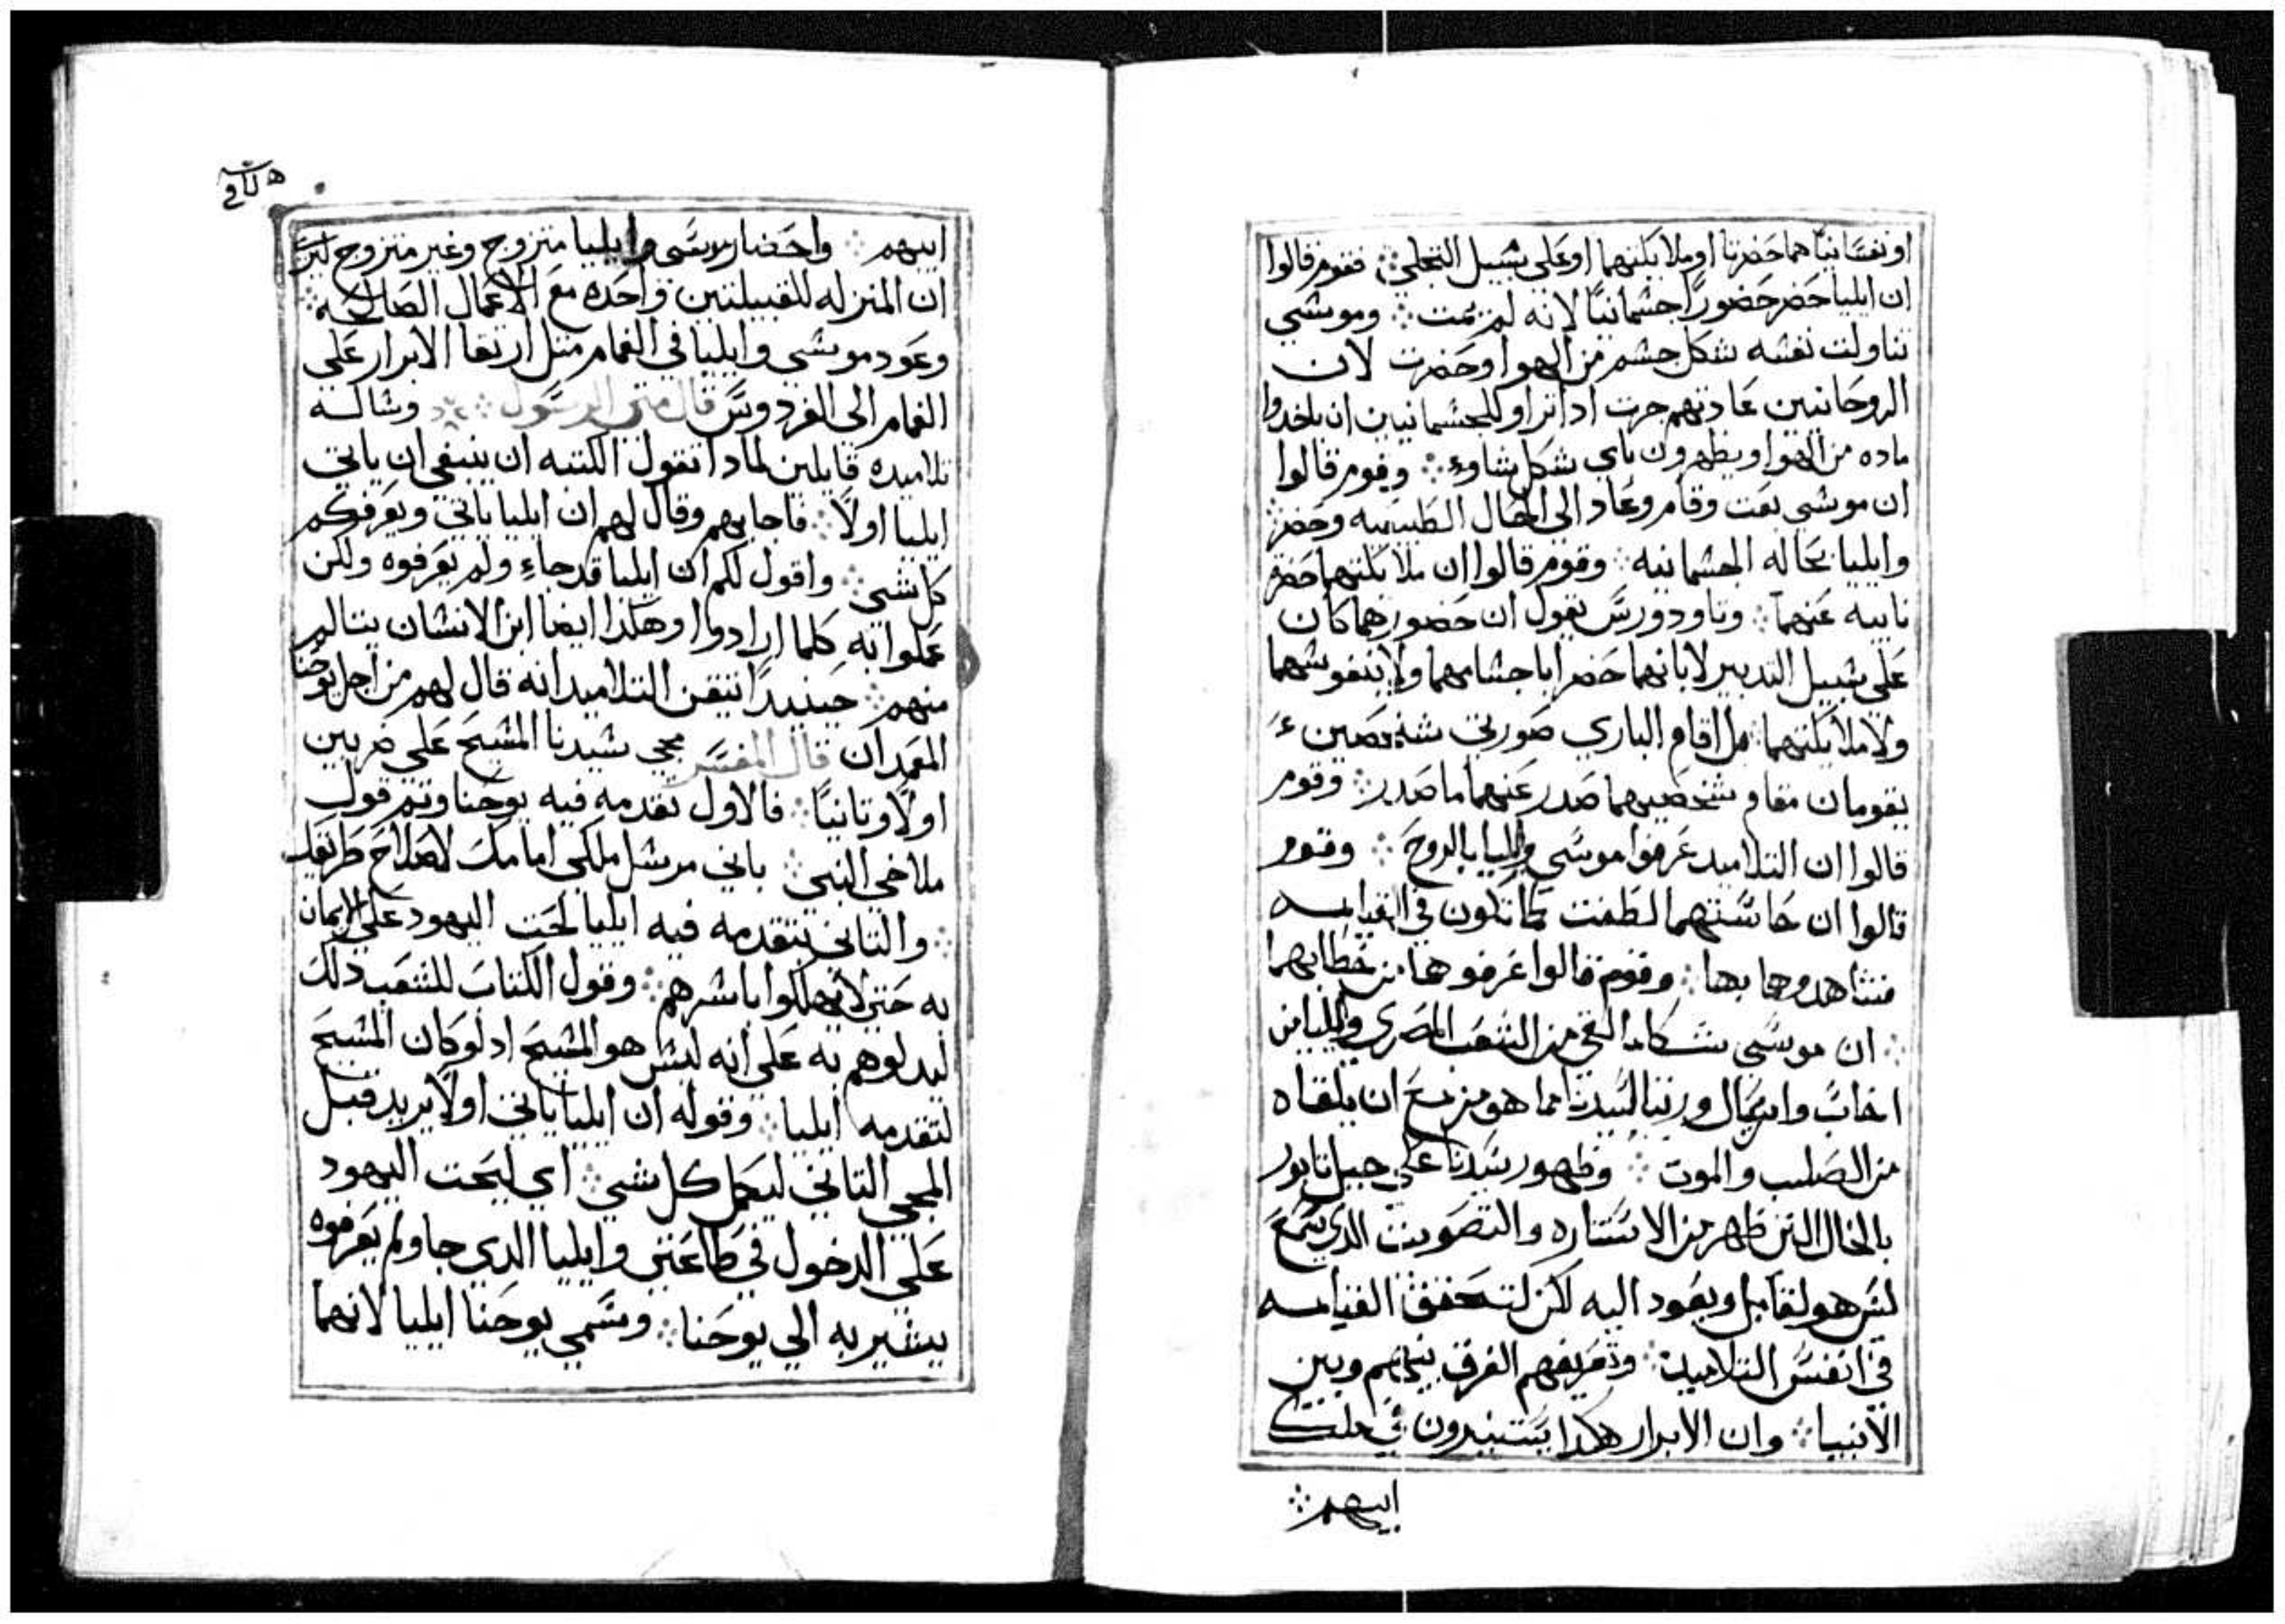 او نفسانيًا هما حضرتا او ملايكتهما او على سبيل التجلي ჻ فقوم قالوا
ان ايليا حضر حضورًا جسمانيًا لانه لم يمت ჻ وموسي
تناولت نفسه شكل جسم من الهوا وحضرت لان
الروحانيين عادتهم جرت ادا تراو للجسمانيين ان ياخدوا
ماده من الهوا ويظهرون باي شكل شاوء ჻ وقوم قالوا
ان موسي بعت وقام وعاد الى الحال الطبيعيه وحضر
وايليا بحاله الجسمانيه ჻ وقوم قالوا ان ملايكتهما حضر
نايبه عنهما ჻ وتاودورس يقول ان حضورهما كان
على سبيل التدبير لا بانهما حضرا باجسامهما ولا بنفوسهما
ولا ملايكتهما بل اقام الباري صورتي شخصين
يقومان مقام شخصيهما صدر عنهما ما صدر ჻ وقوم
قالوا ان التلاميد عرفوا موسي وايليا بالروح ჻ وقوم
قالوا ان حاستهما لطفت كما تكون في القيامه
فشاهدوهما بها ჻ وقوم قالوا عرفوهما من خطابهما
჻ ان موسي شكا من الشعب المصري وايليا من
اخاب وايزبال ورتيا لسيدنا مما هو مزمع ان يلقاه
من الصلب والموت ჻ وظهور سيدنا على جبل تابور
بالحال التي ظهر من الاستناره والتصويت الدي سمع
ليس هو لقابل ويعود اليه لكن لتحقق القيامه
في انفس التلاميد ჻ وتعريفهم الفرق بينهم وبين
الانبيا ჻ وان الابرار هكدا يستنيرون في ملكوت
ابيهم ჻
ابيهم ჻ واحضار موسي وايليا متزوج وغير متزوج ليرى
ان المنزله للقبيلتين واحده مع الاعمال الصالحه ჻
وعود موسي وايليا في الغمام مثل ارتقا الابرار على
الغمام الى الفردوس قال متى الرسول ჻ وساله
تلاميده قايلين لمادا تقول الكتبه ان ينبغي ان ياتي
ايليا اولًا ჻ فاجابهم وقال لهم ان ايليا ياتي ويعرفكم
كل شي ჻ واقول لكم ان ايليا قد جاء ولم يعرفوه ولكن
عملوا به كلما ارادوا وهكدا ايضا ابن الانسان يتالم
منهم ჻ حينيدًا تيقن التلاميد انه قال لهم من اجل يوحنا
المعمدان قال المفسر مجي سيدنا المسيح على ضربين
اولًا وتانيًا ჻ فالاول تقدمه فيه يوحنا وتم قول
ملاخي النبي ჻ باني مرسل ملكي امامك لاصلاح طريقك
჻ والتاني يتقدمه فيه ايليا لحت اليهود على الايمان
به حتى لا يهلكوا باسرهم ჻ وقول الكتاب للشعب دلك
ليدلوهم به على انه ليس هو المسيح اد لو كان المسيح
لتقدمه ايليا ჻ وقوله ان ايليا ياتي اولًا يريد قبل
المجي التاني ليكمل كل شي ჻ اي ليحت اليهود
على الدخول في طاعتي وايليا الدي جا ولم يعرفوه
يشير به الي يوحنا ჻ وسمي يوحنا ايليا لانهما